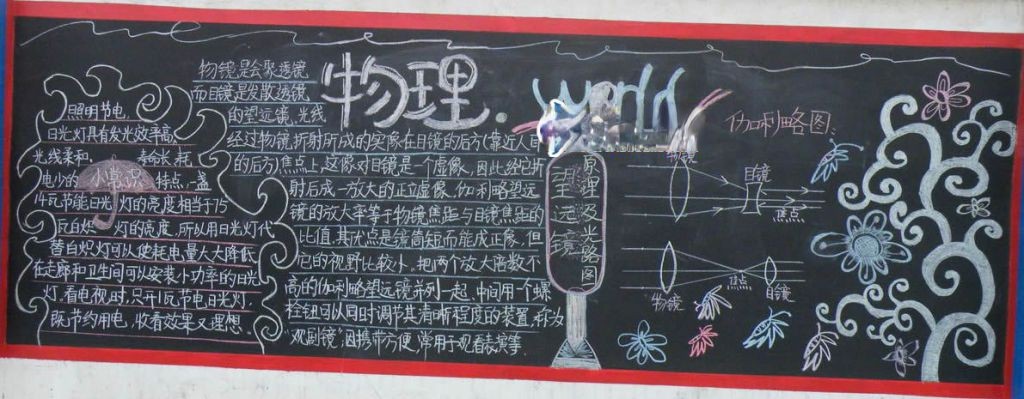 照明节电,
日光灯具有发光效率高,
光线柔和, 寿命长,耗
电少的 特点,一盏
14瓦节能日光灯的亮度相当于75
瓦白炽灯的亮度,所以用日光灯代
替白炽灯可以使耗电量大大降低
在走廊和卫生间可以安装小功率的日光
灯.看电视时,只开1瓦节电日光灯,
既节约用电,收看效果又理想.
小常识
物理.
world
物镜是会聚透镜
而目镜是发散透镜
的望远镜.光线
经过物镜折射所成的实像在目镜的后方(靠近人目
的后方)焦点上,这像对目镜是一个虚像,因此经它折
射后成一放大的正立虚像.伽利略望远
镜的放大率等于物镜焦距与目镜焦距的
比值.其优点是镜筒短而能成正像,但
它的视野比较小.把两个放大倍数不
高的伽利略望远镜并列一起、中间用一个螺
栓钮可以同时调节其清晰程度的装置,称为
"观剧镜"因携带方便,常用于观看表演等.
望远镜
原理及光路图
伽利略图:
物镜
目镜
焦点
物镜
焦点
目镜